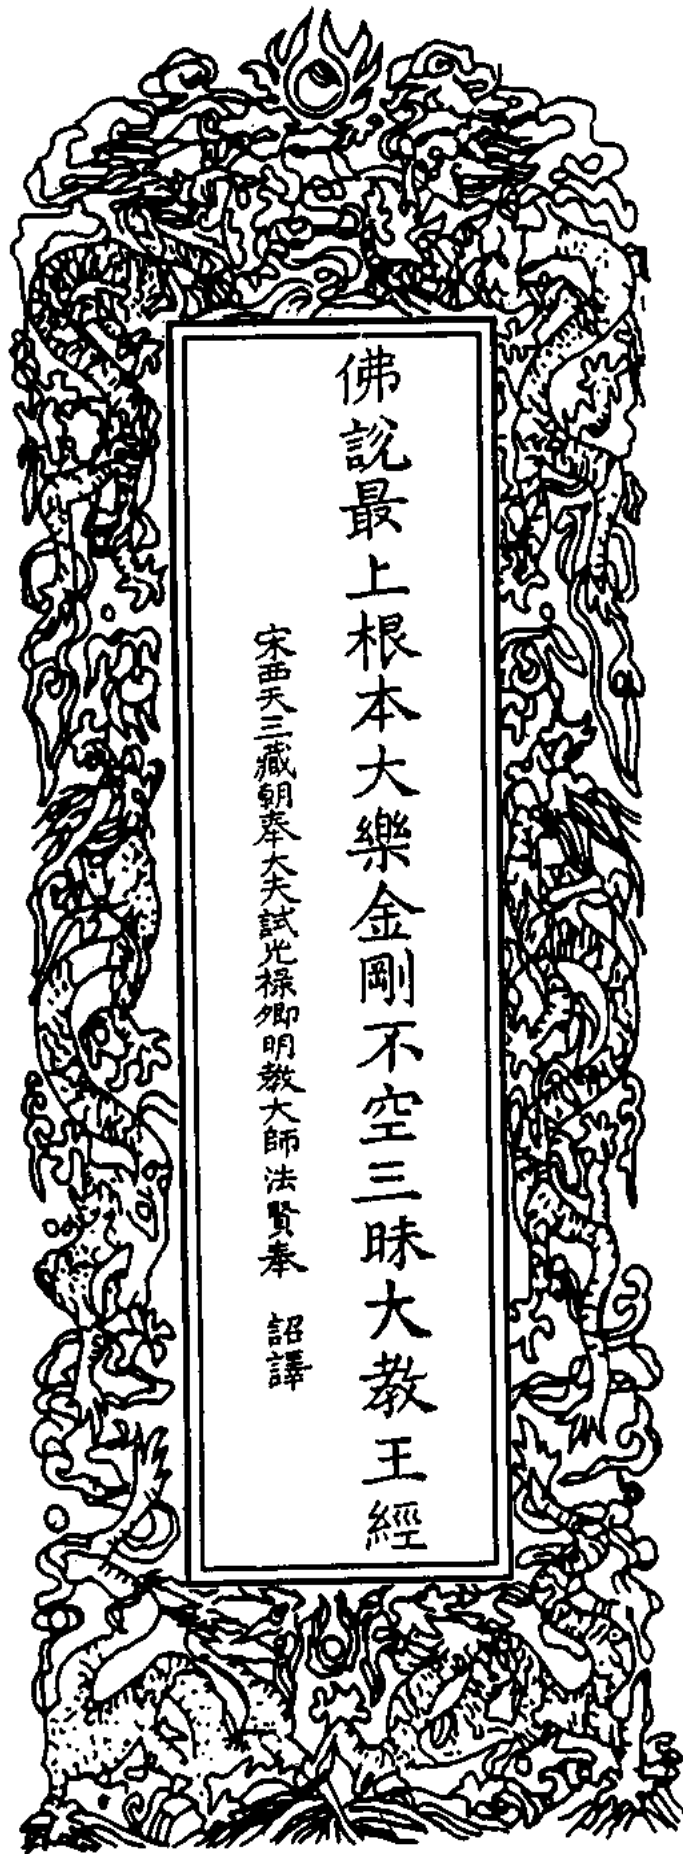 佛說最上根本大樂金剛不空三昧大教王經
宋西天三藏朝奉大夫試光祿卿明教大師法賢奉　詔譯